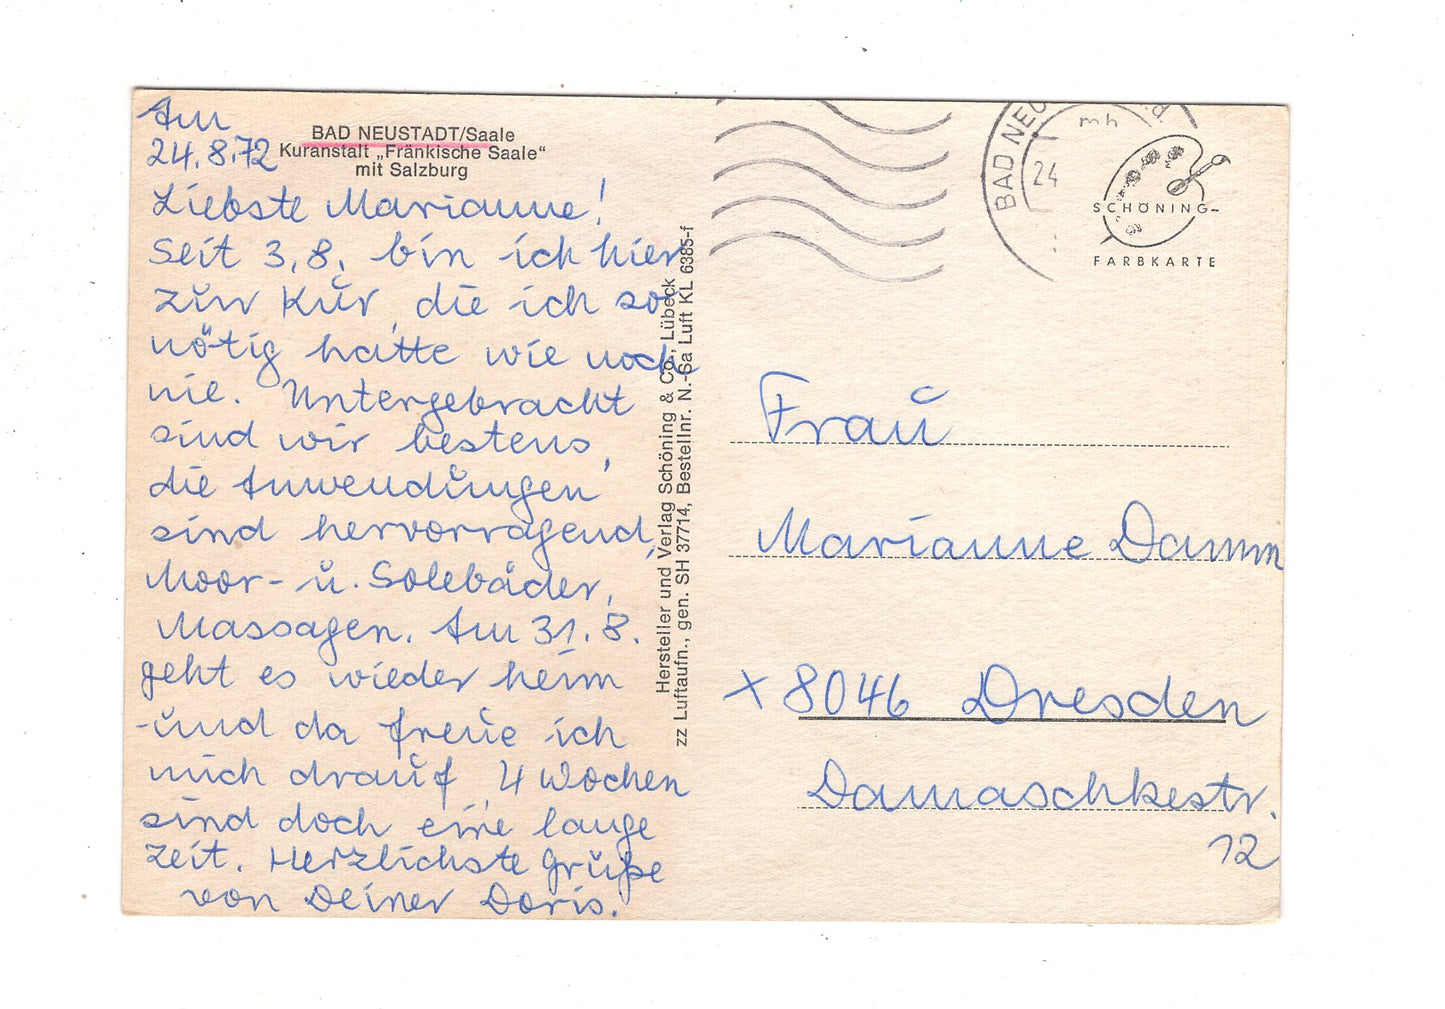 Am
24.8.72
BAD NEUSTADT/Saale
Kuranstalt „Fränkische Saale“
mit Salzburg
Liebste Marianne!
Seit 3.8. bin ich hier
zur Kur, die ich so
nötig hatte wie noch
nie. Untergebracht
sind wir bestens,
die Anwendungen
sind hervorragend,
Moor- u. Solebäder,
Massagen. Am 31.8.
geht es wieder heim
-und da freue ich
mich drauf, 4 Wochen
sind doch eine lange
Zeit. Herzlichste Grüße
von Deiner Doris.
Hersteller und Verlag Schöning & Co., Lübeck
zz Luftaufn., gen. SH 37714, Bestellnr. N.-Sa Luft KL 6385-f
BAD NEU
mh
24
SCHÖNING-
FARBKARTE
Frau
Marianne Damm
x 8046 Dresden
Damaschkestr.
12